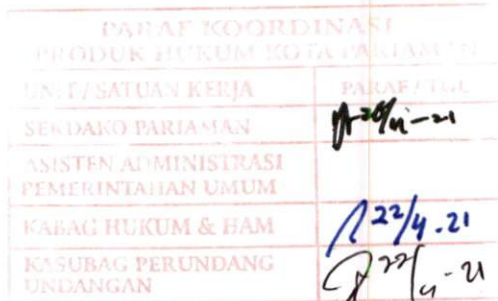 PARAF KOORDINASI
PRODUK HUKUM KOTA PARIAMAN
UNIT / SATUAN KERJA PARAF / TGL
SEKDAKO PARIAMAN
ASISTEN ADMINISTRASI
PEMERINTAHAN UMUM
KABAG HUKUM & HAM 22/4.21
KASUBAG PERUNDANG 22/4-21
UNDANGAN